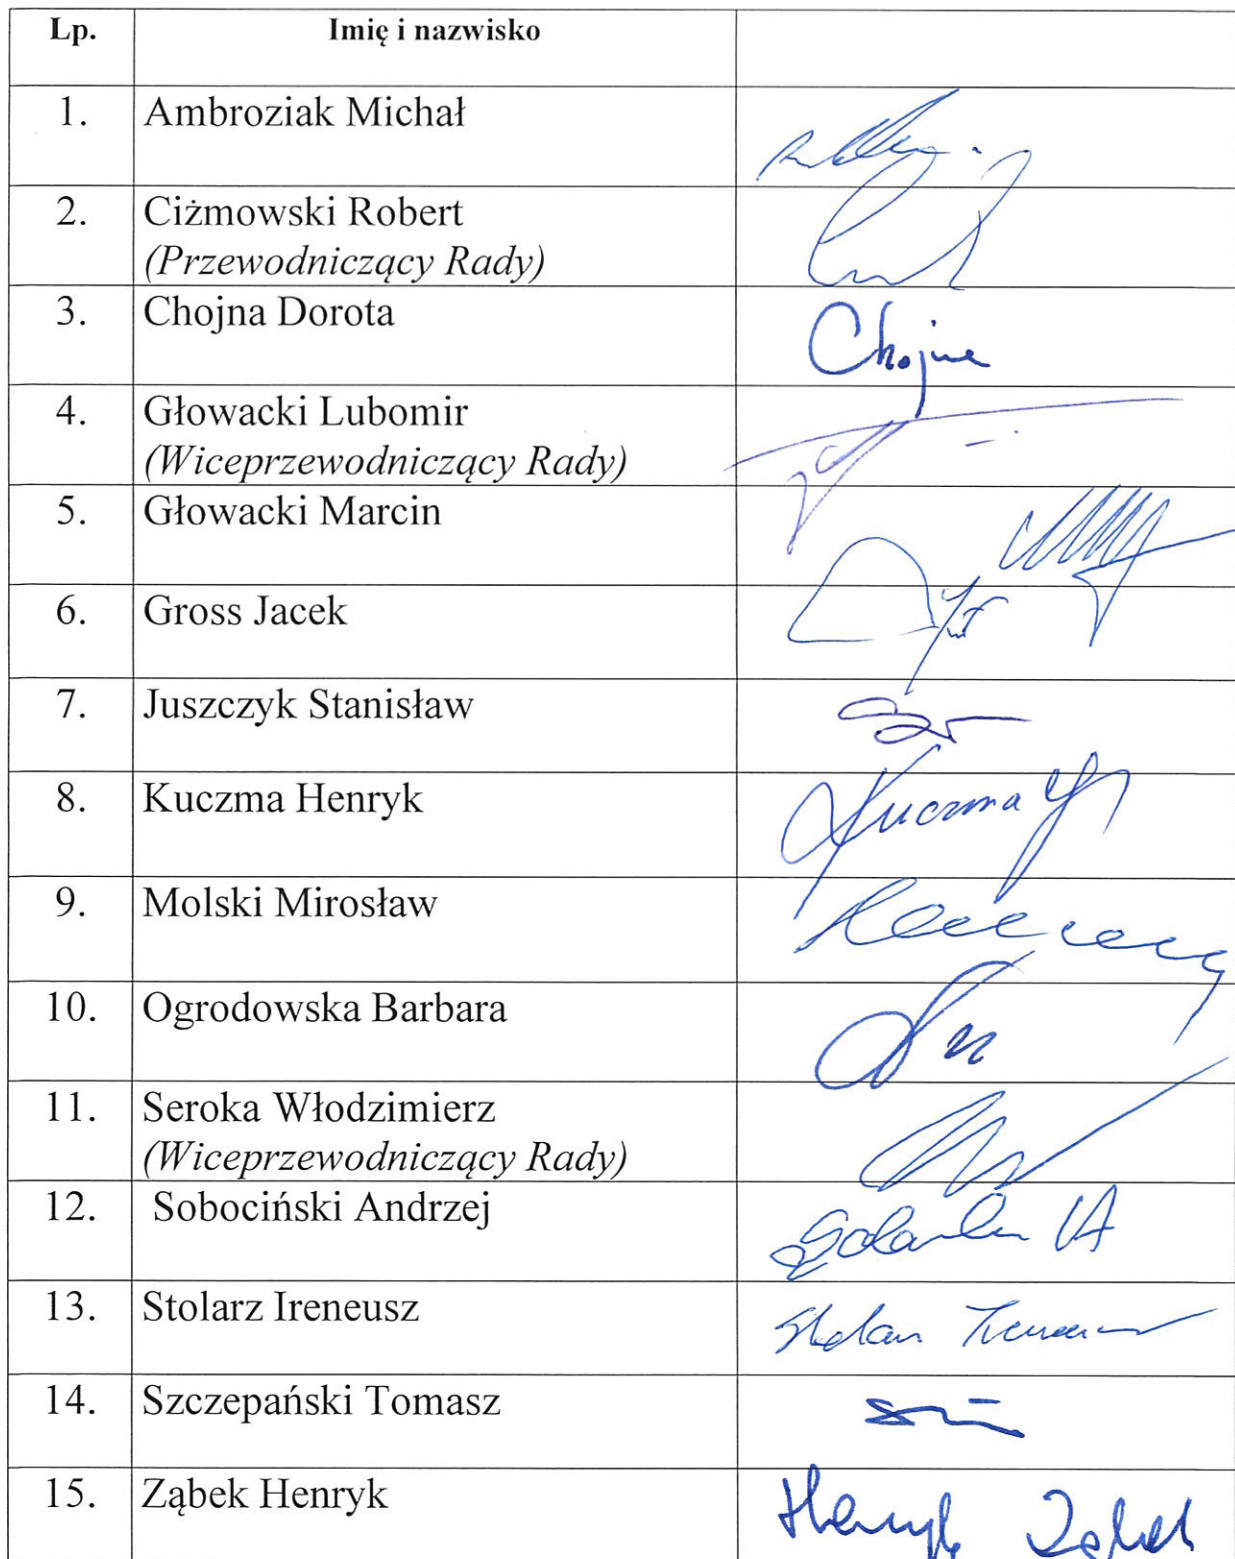 Lp. Imię i nazwisko
1. Ambroziak Michał
2. Ciżmowski Robert
(Przewodniczący Rady)
3. Chojna Dorota
Chojna
4. Głowacki Lubomir
(Wiceprzewodniczący Rady)
5. Głowacki Marcin
6. Gross Jacek
7. Juszczyk Stanisław
8. Kuczma Henryk
Kuczma
9. Molski Mirosław
10. Ogrodowska Barbara
11. Seroka Włodzimierz
(Wiceprzewodniczący Rady)
12. Sobociński Andrzej
13. Stolarz Ireneusz
14. Szczepański Tomasz
15. Ząbek Henryk
Henryk Ząbek